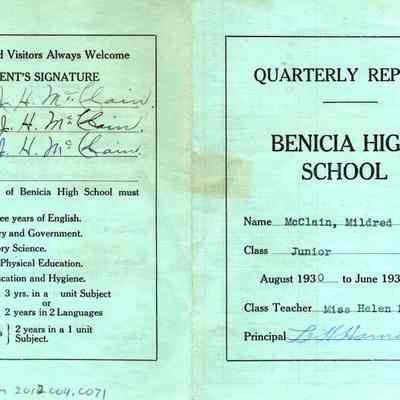 d Visitors Always Welcome
ENT'S SIGNATURE
J. H. McClain.
J. H. McClain.
J. H. McClain.
of Benicia High School must
ee years of English.
ry and Government.
ory Science.
Physical Education.
cation and Hygiene.
3 yrs. in a unit Subject
or
2 years in 2 Languages
s } 2 years in a 1 unit Subject.
2012.004.0071
QUARTERLY REP
BENICIA HIG
SCHOOL
Name McClain, Mildred
Class Junior
August 1930 to June 193
Class Teacher Miss Helen
Principal